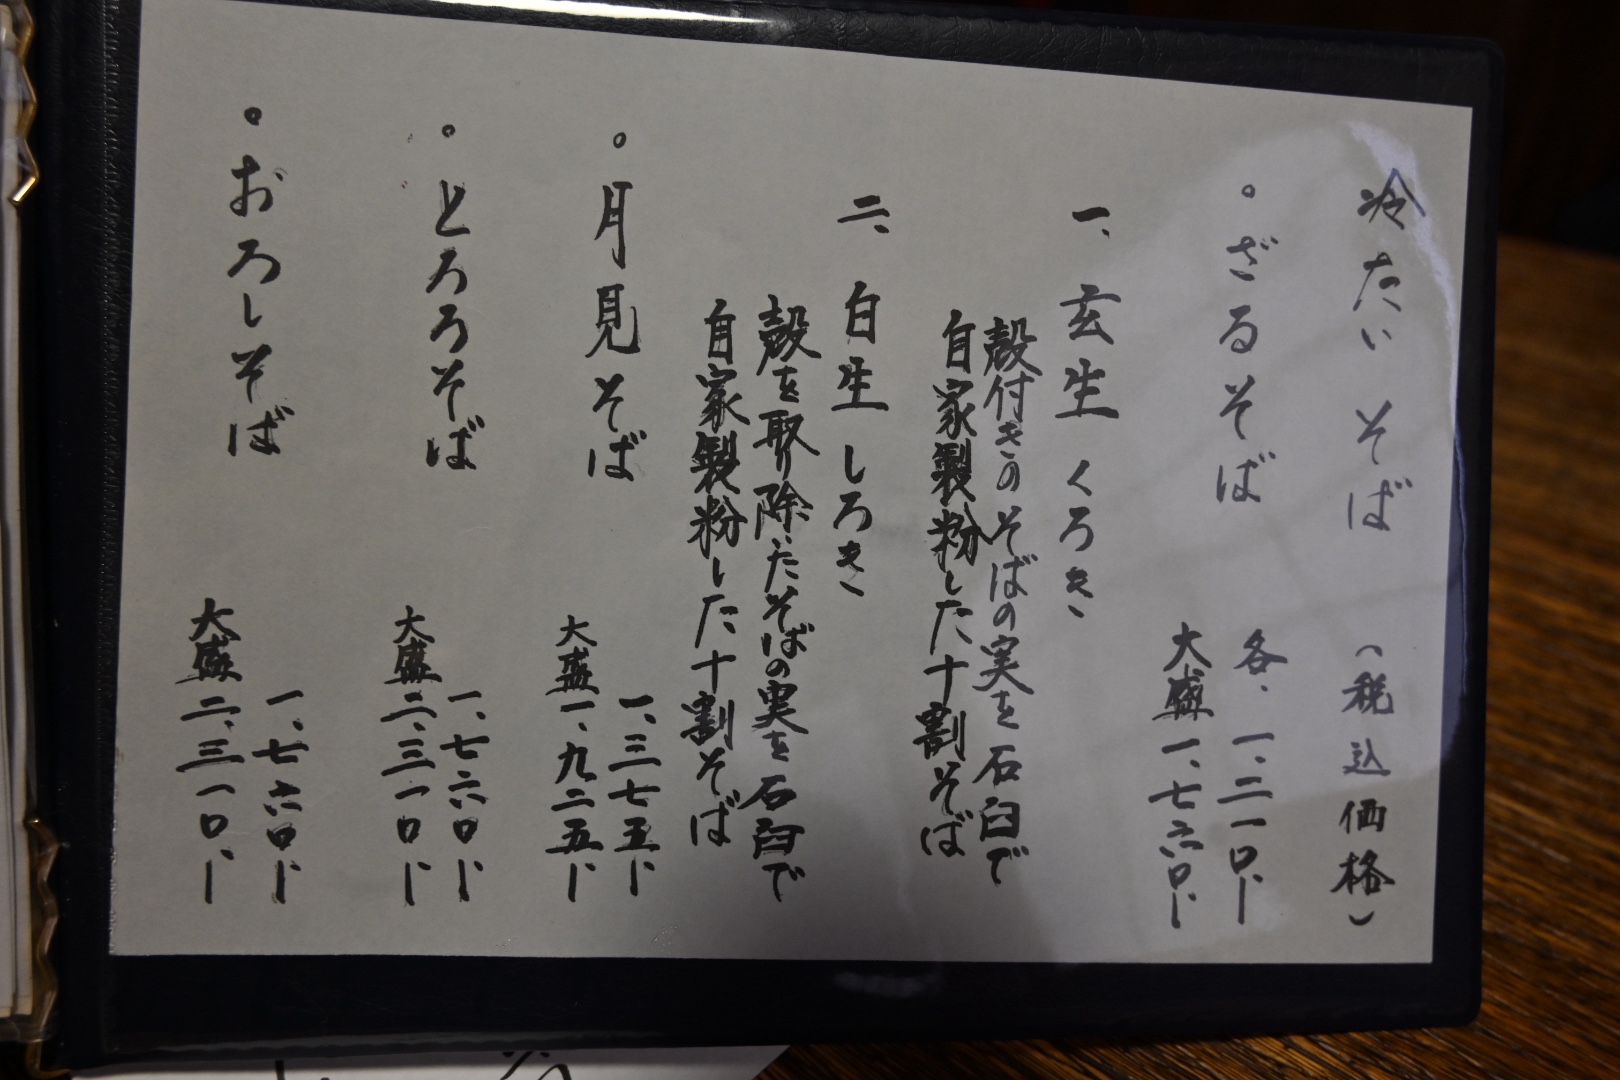 冷たいそば (税込価格)
。ざるそば
各、一、二一〇、ー
大盛 一、七六〇、ー
一、玄生 くろき
殻付きのそばの実を石臼で
自家製粉した十割そば
二、白生 しろき
殻を取り除いたそばの実を石臼で
自家製粉した十割そば
。月見そば
一、三七五、ー
大盛 一、九二五、ー
。とろろそば
一、七六〇、ー
大盛 二、三一〇、ー
。おろしそば
一、七六〇、ー
大盛 二、三一〇、ー